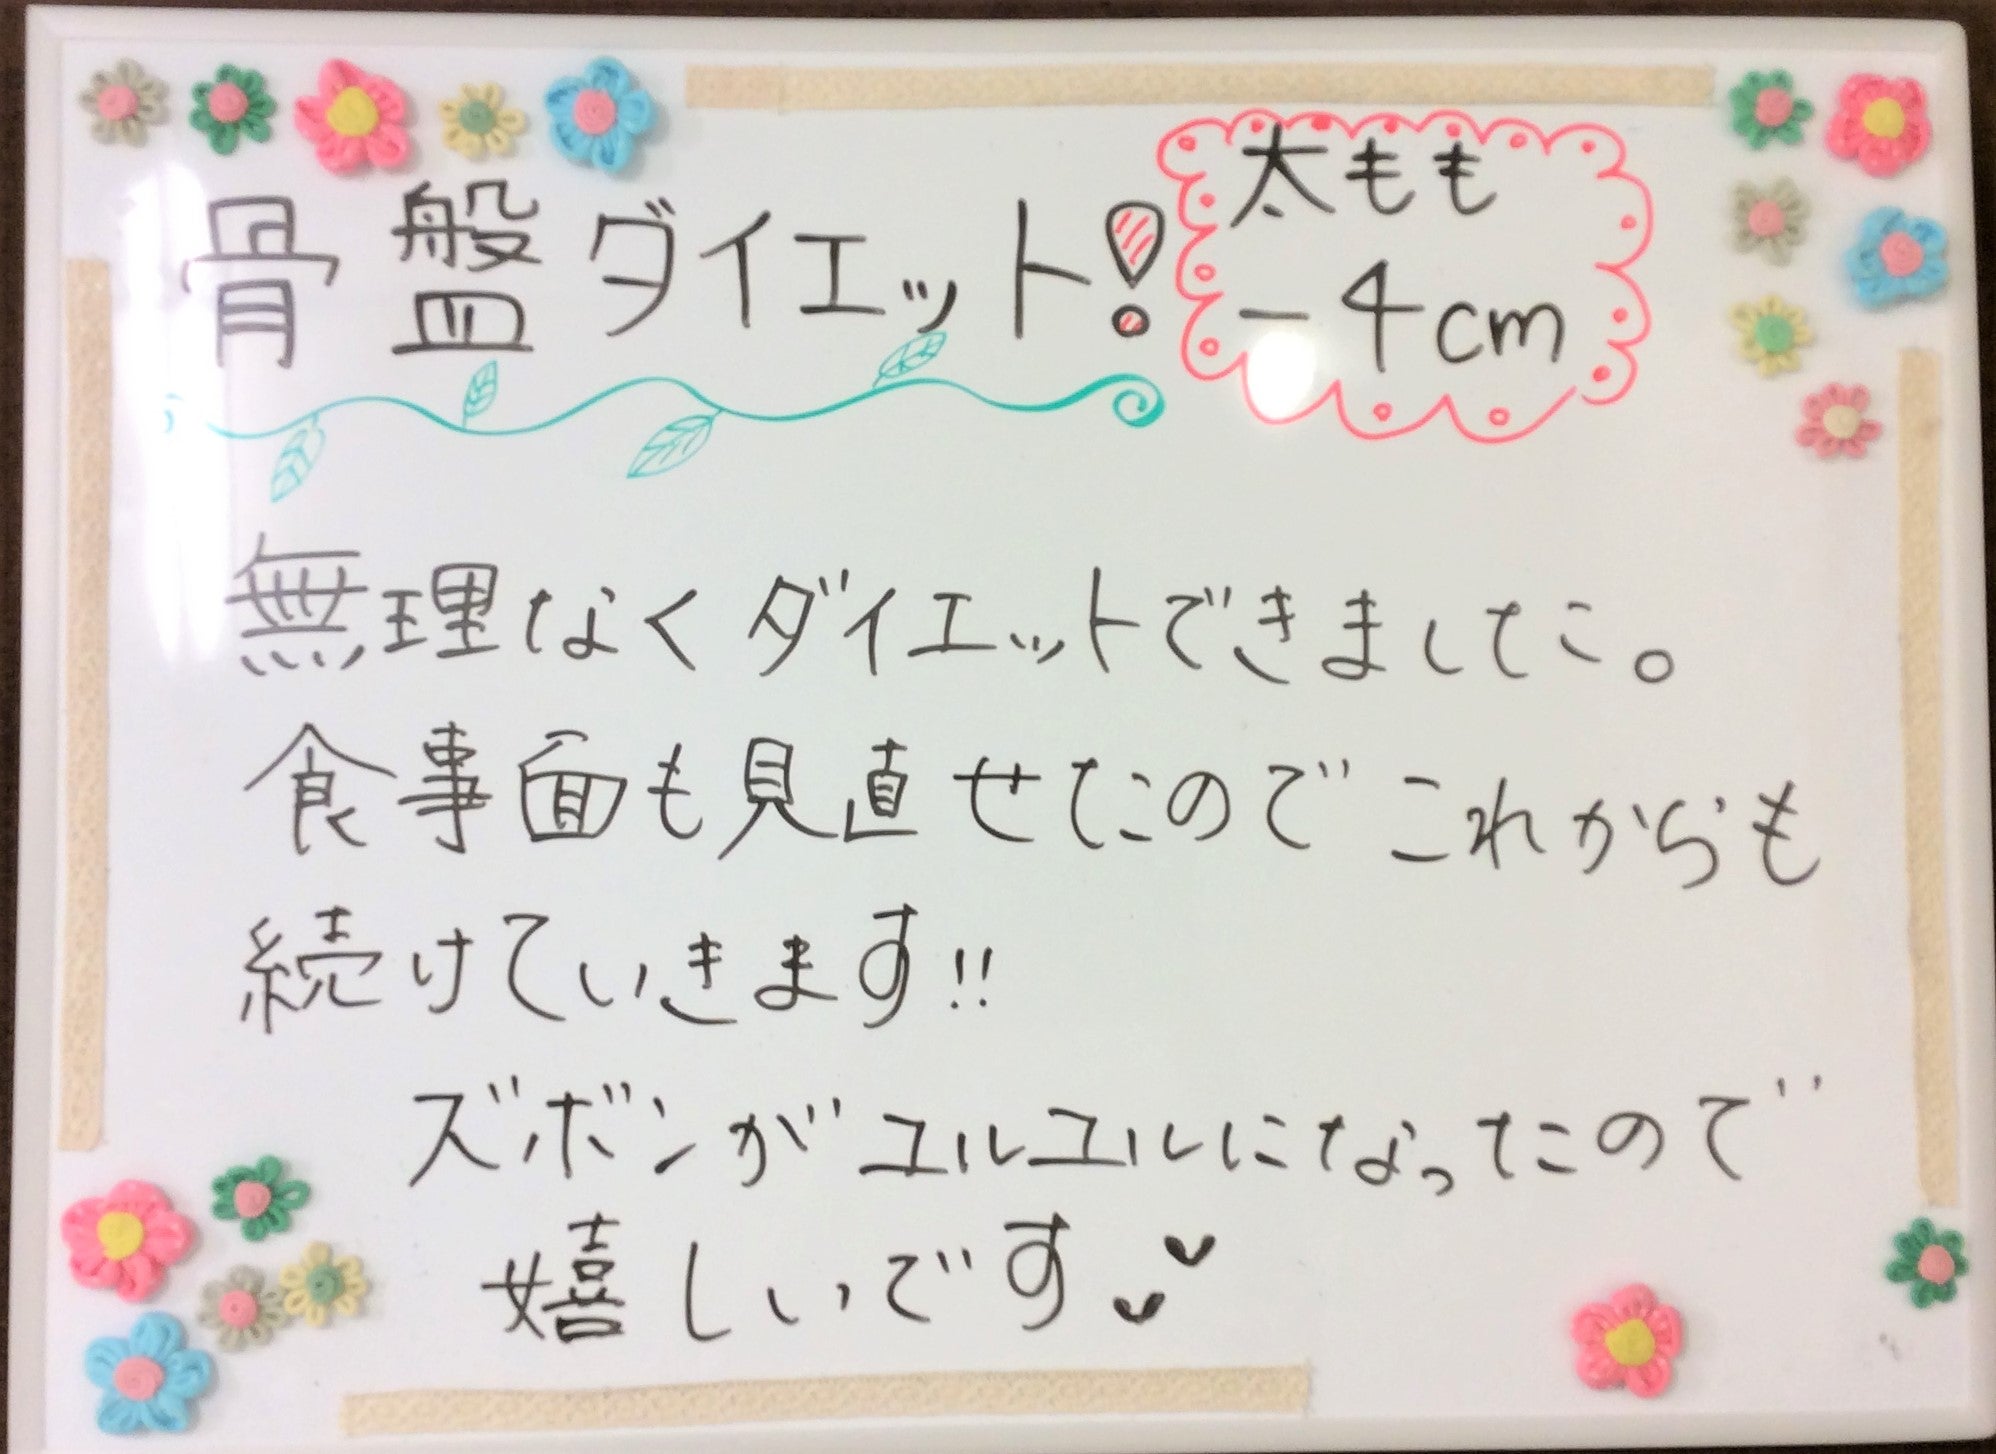 骨盤ダイエット!
太もも
-4cm
無理なくダイエットできました。
食事面も見直せたのでこれからも
続けていきます!!
ズボンがユルユルになったので
嬉しいです♥♥